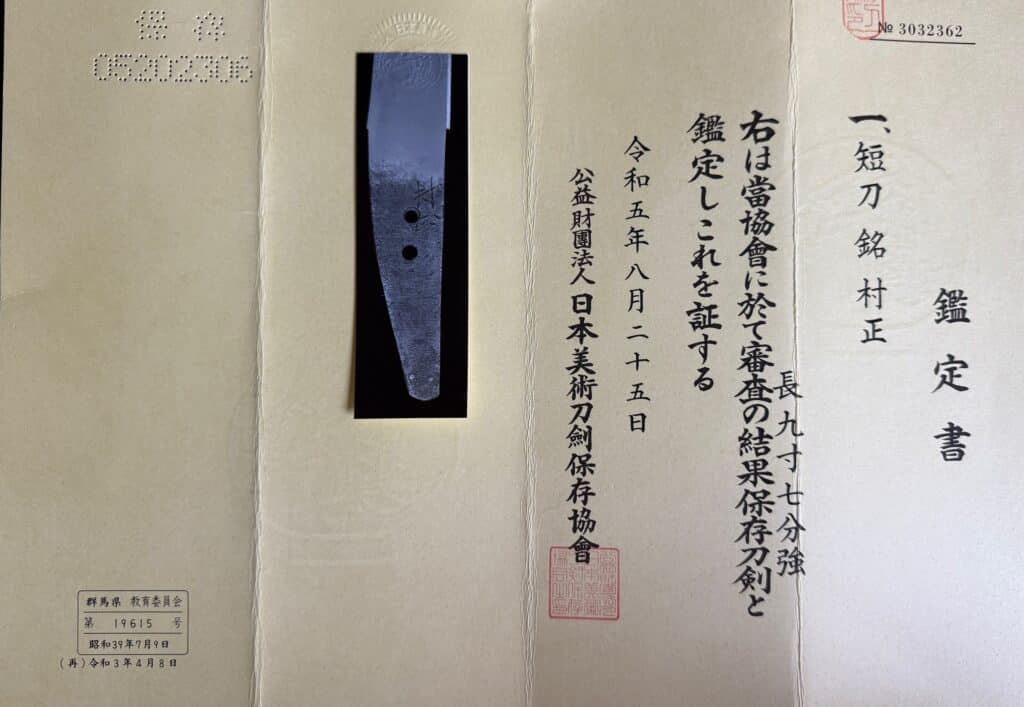 № 3032362
鑑定書
一、短刀 銘 村正
長九寸七分強
右は當協會に於て審査の結果保存刀剣と
鑑定しこれを証する
令和五年八月二十五日
公益財團法人 日本美術刀劍保存協會
村正
保存
05202306
群馬県 教育委員会
第 19615 号
昭和39年7月9日
(再)令和3年4月8日